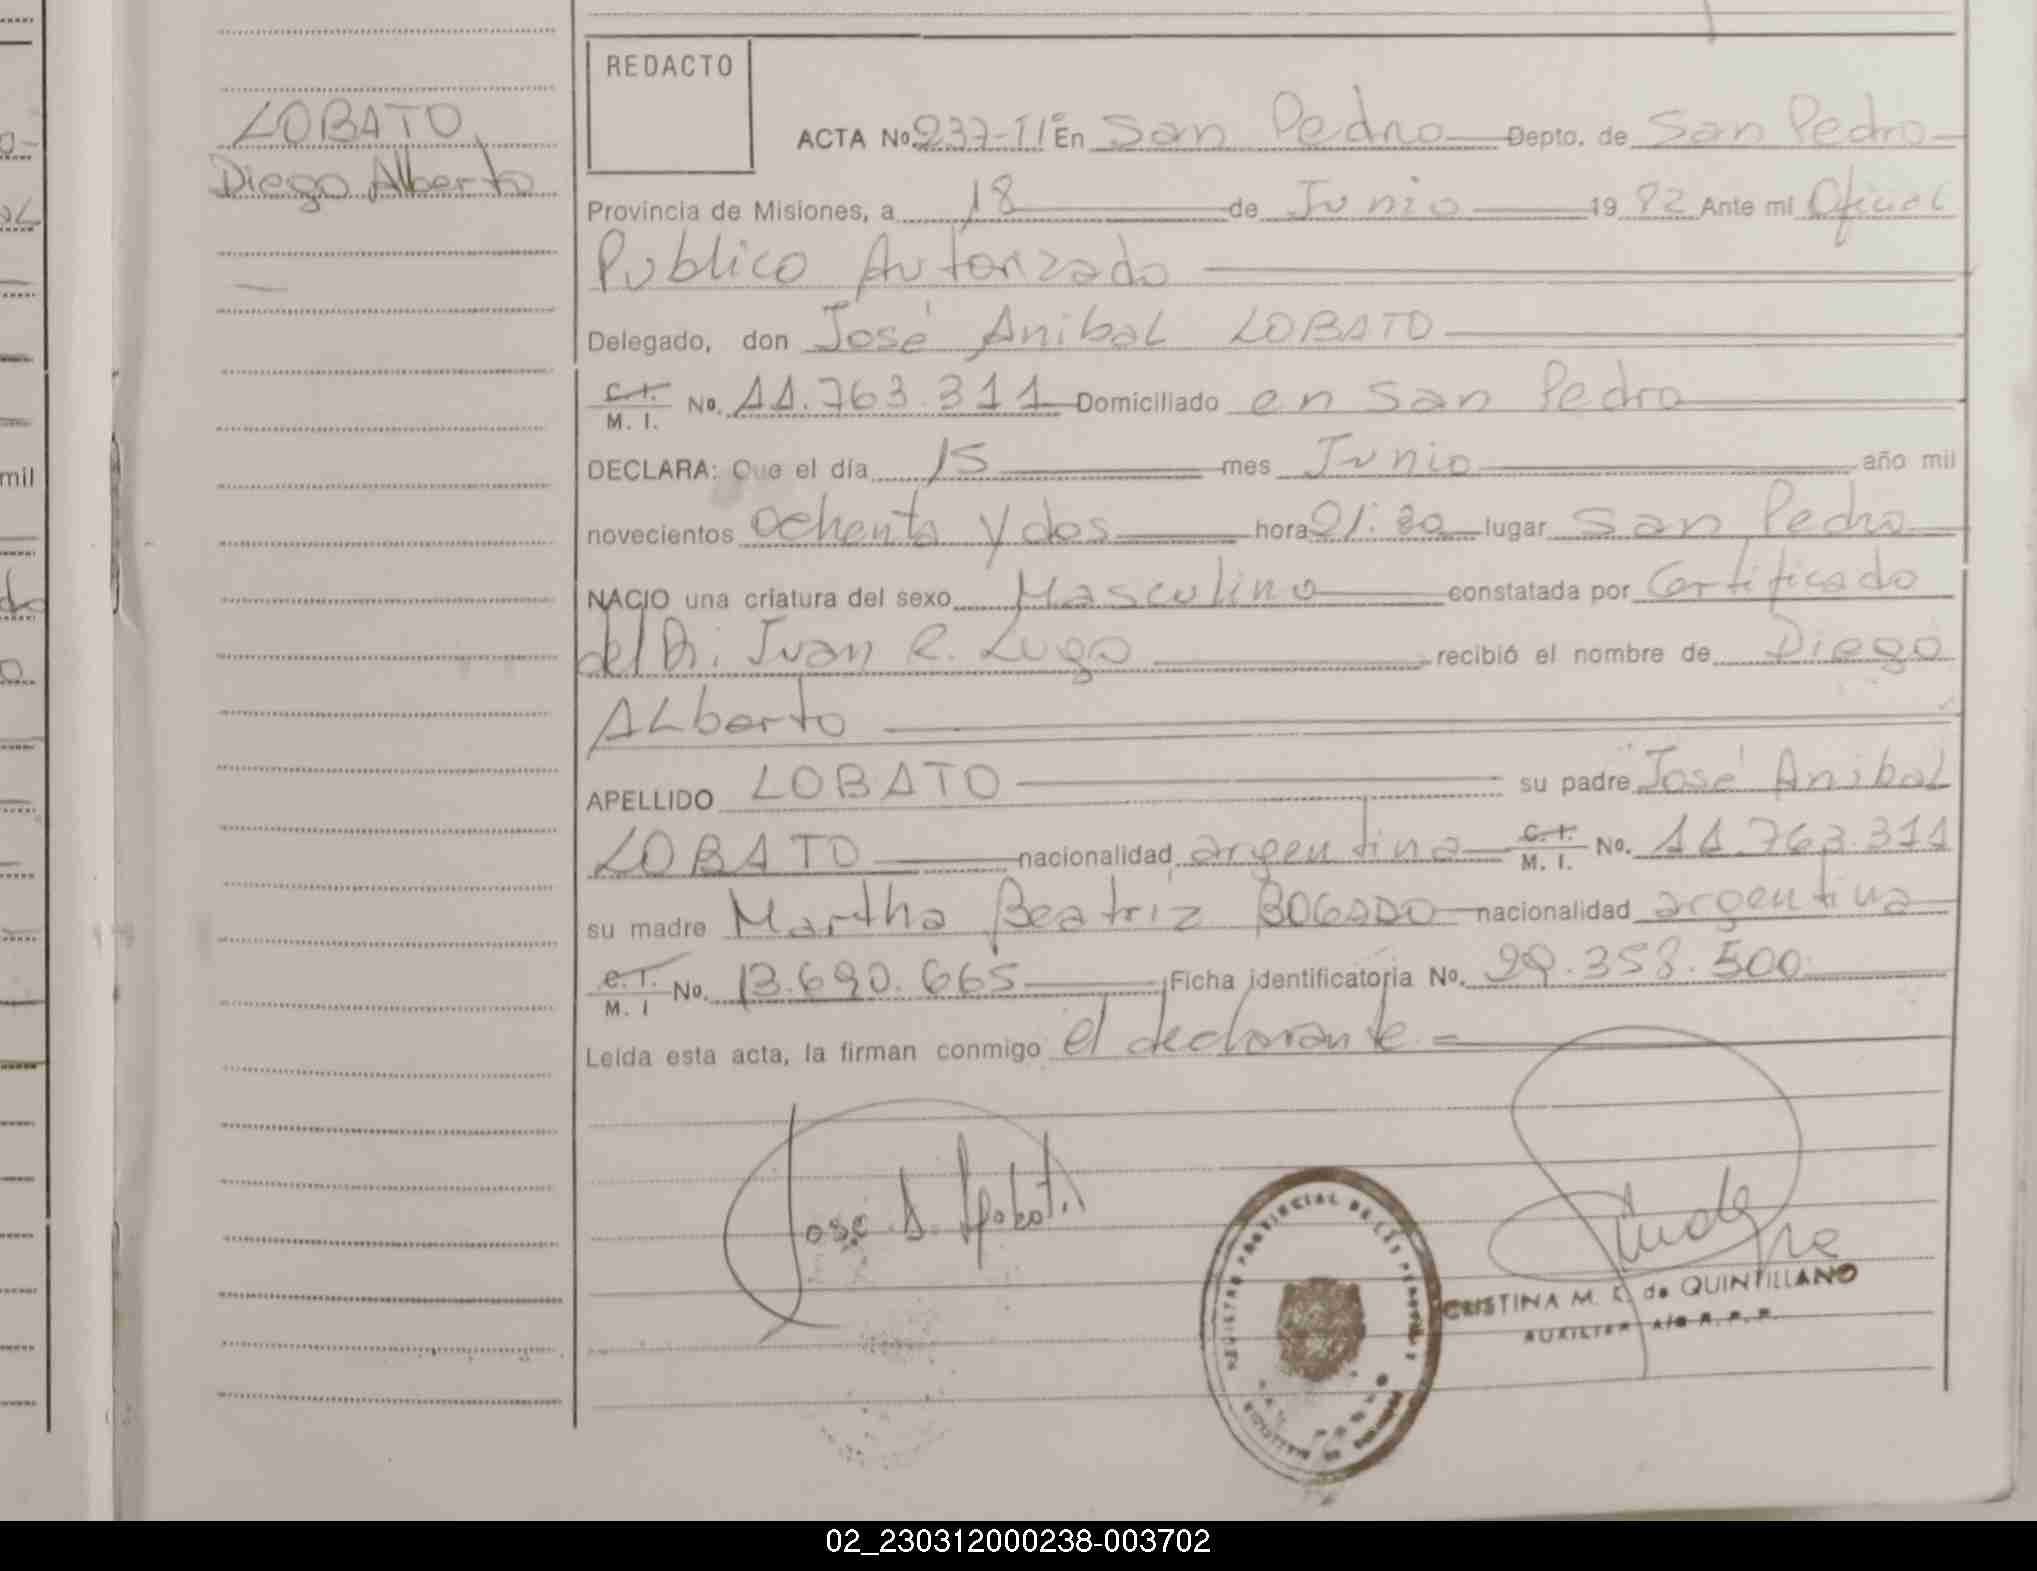 LOBATO,
Diego Alberto
REDACTO
ACTA No. 237-TIº En San Pedro Depto. de San Pedro
Provincia de Misiones, a 18 de Junio 19 82 Ante mi Oficial
Publico Autorizado
Delegado, don José Anibal LOBATO
C.I. M. I. No. 11.763.311 Domiciliado en San Pedro
DECLARA: Que el día 15 mes Junio año mil
novecientos ochenta y dos hora 21:30 lugar San Pedro
NACIO una criatura del sexo Masculino constatada por Certificado
del Dr. Juan R. Lugo recibió el nombre de Diego
ALberto
APELLIDO LOBATO su padre José Anibal
LOBATO nacionalidad argentina C.I. M. I. No. 11.763.311
su madre Martha Beatriz BOGADO nacionalidad argentina
C.I. M. I No. 13.690.665 Ficha identificatoria No. 29.358.500
Leída esta acta, la firman conmigo el declarante.-
Jose A. Lobato
REGISTRO PROVINCIAL DE LAS PERSONAS
CRISTINA M. de QUINTILLANO
AUXILIAR A/C R. P. P.
mil
02_230312000238-003702